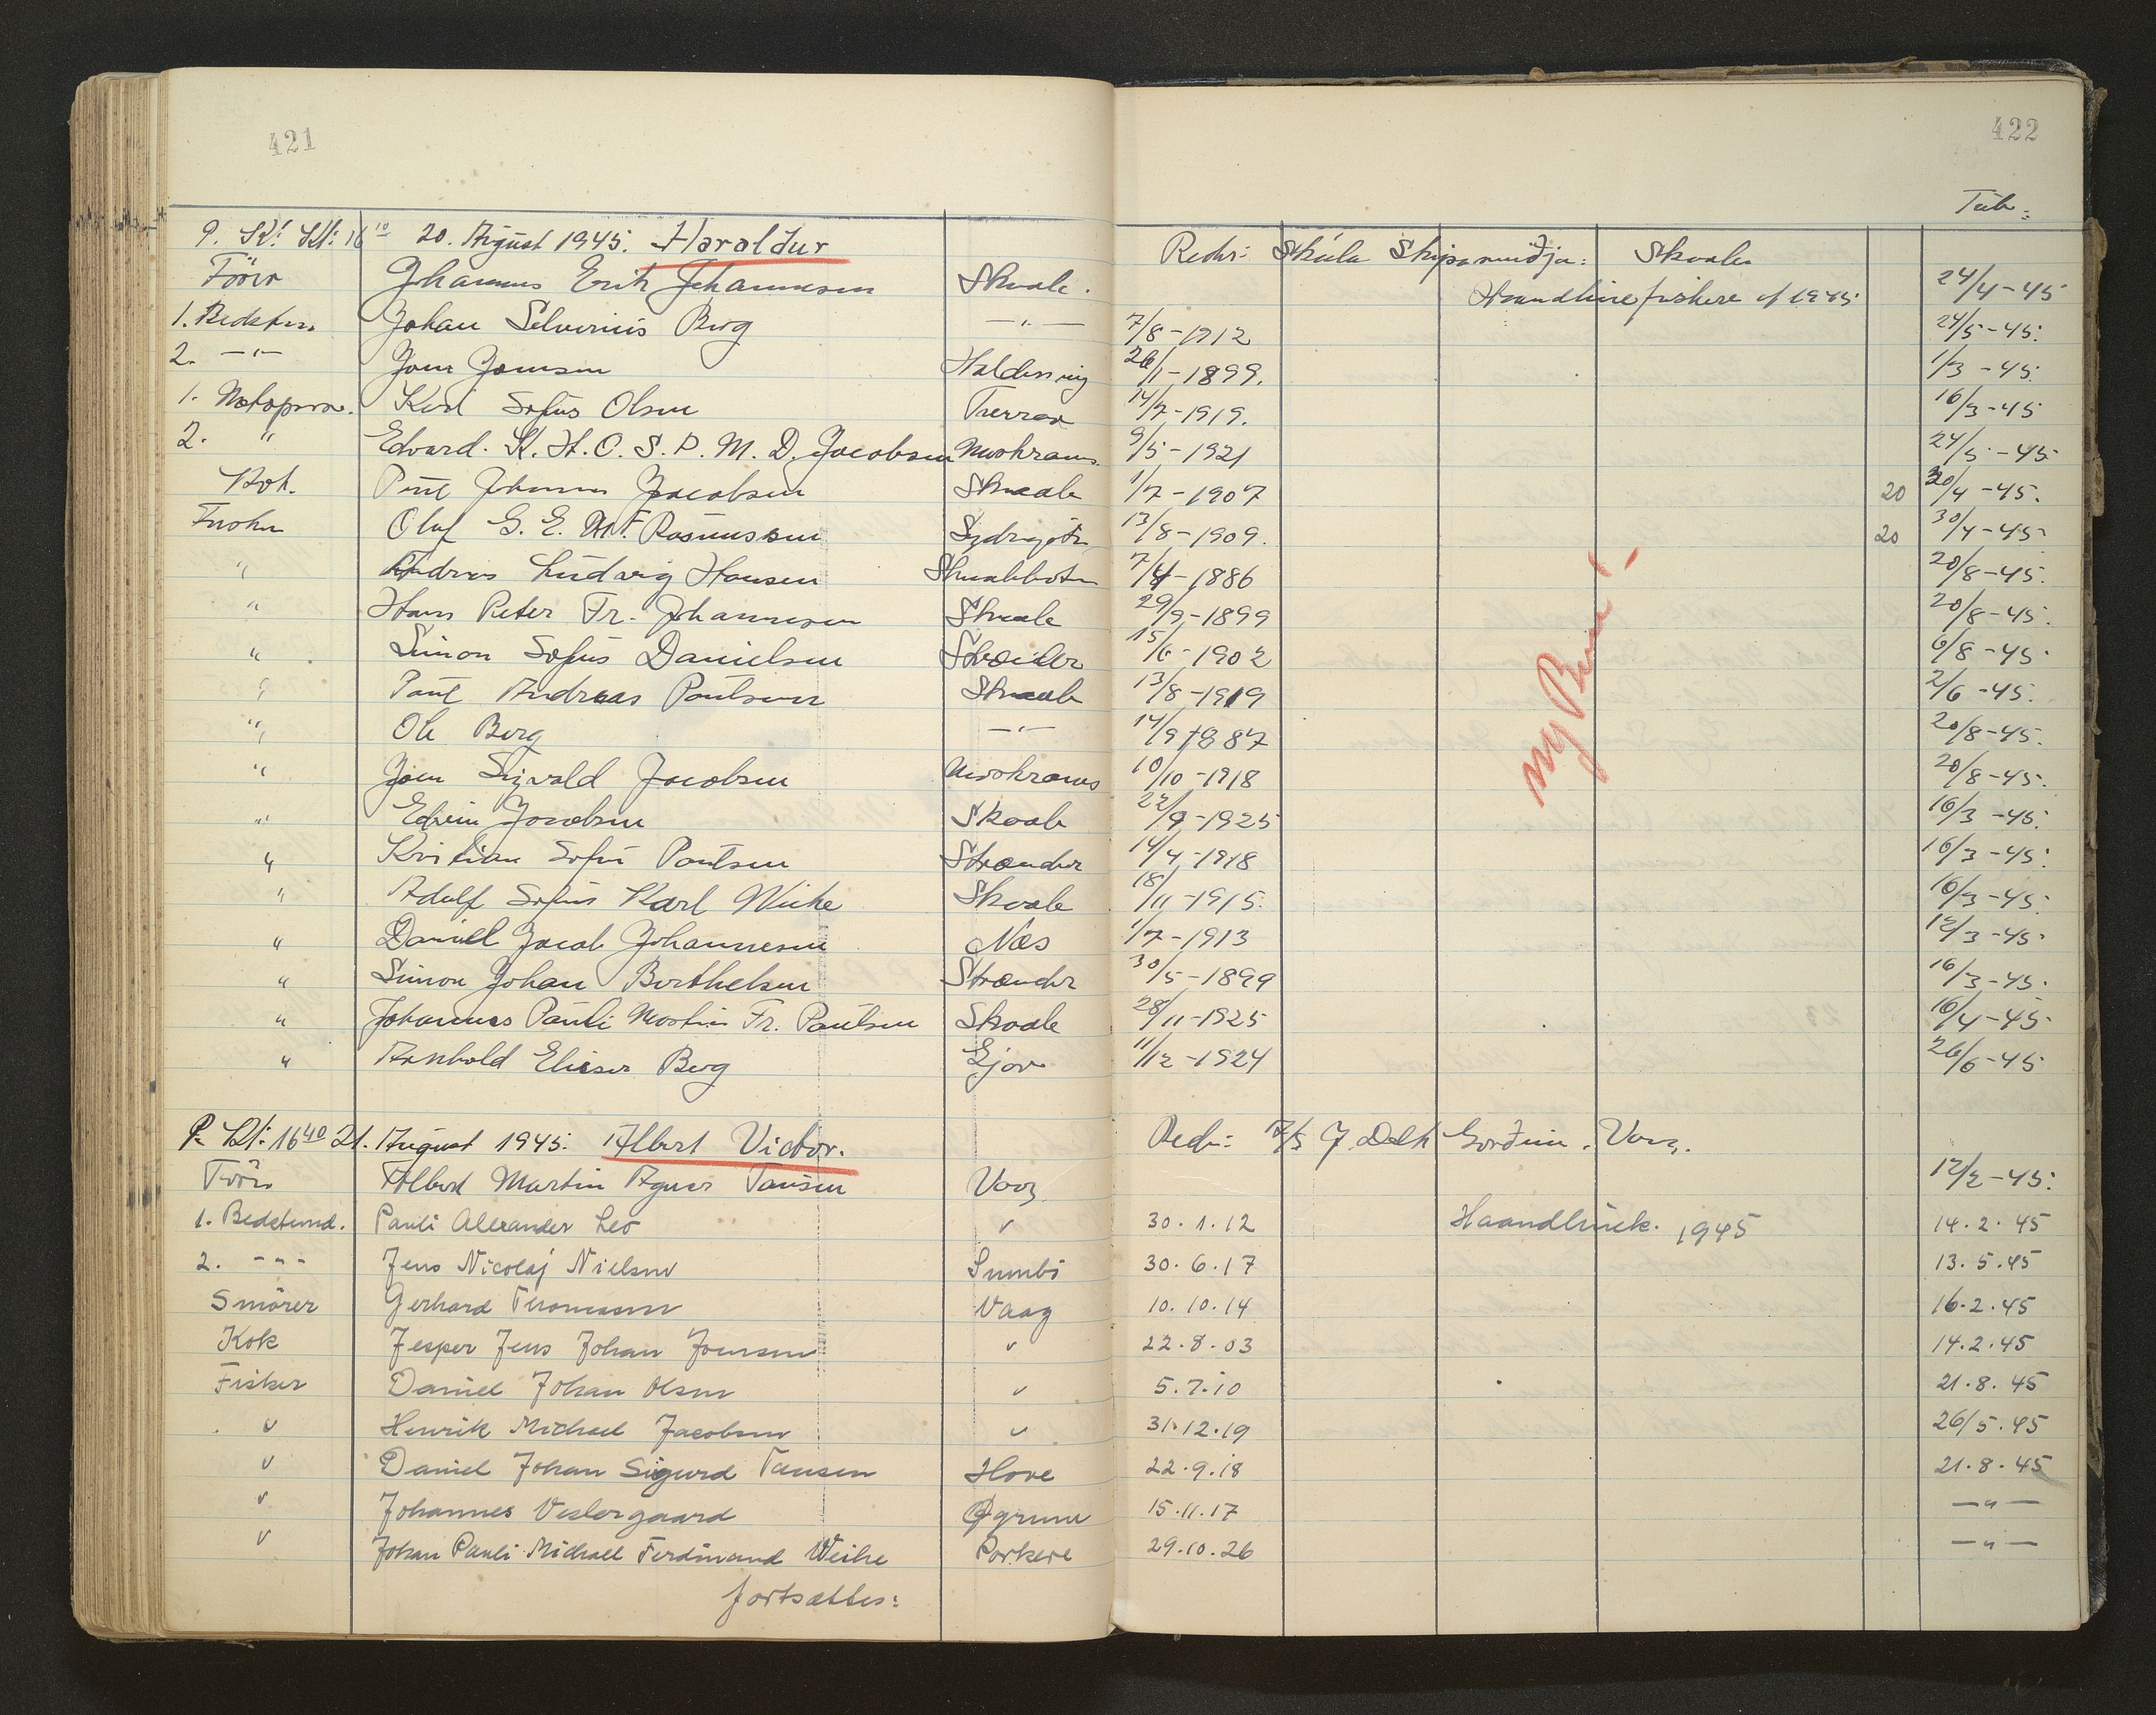 421
422
Tilt:
P. Kl: 16¹⁰ 20. August 1945. Haraldur Rederi: Skála Skipasmidja: Skaale
Förer Johannes Erik Johannesen Skaale. Haandlinefiskere of 1945 24/4-45
1. Bedstm. Johan Selverius Berg —"— 7/8-1912 24/5-45.
2. —"— Joen Joensen Haldersvig 26/1-1899. 1/3-45.
1. Motorpasser. Karl Sofus Olsen 14/7-1919. 16/3-45
2. " Edvard. K. H. O. S. P. M. D. Jacobsen 9/5-1921 24/5-45
Kok. Poul Johannes Jacobsen Skaale 1/7-1907 20 30/4-45.
Fisker Oluf G. E. M. F. Rasmussen Sydrugøta 13/8-1909. 20 30/4-45
" Andreas Ludvig Hansen Skaalebotn 7/4-1886 20/8-45.
" Hans Peter Fr. Johannesen Skaale 29/9-1899 20/8-45.
" Simon Sofus Danielsen Strænder 15/6-1902 6/8-45
" Poul Andreas Poulsen Skaale 13/8-1919 2/6-45.
" Ole Berg —"— 14/9 1887 20/8-45.
" Joen Sigvald Jacobsen 10/10-1918 20/8-45.
" Edvin Jacobsen Skaale 22/9-1925 16/3-45.
" Kristian Sofus Poulsen Strænder 14/4-1918 16/3-45.
" Adolf Sofus Karl Weihe Skaale 18/11-1915. 16/3-45.
" Daniel Jacob Johannesen Næs 1/7-1913 12/3-45.
" Simon Johan Berthelsen Strænder 30/5-1899 16/3-45.
" Johannes Pauli Martin Fr. Poulsen Skaale 28/11-1925 16/4-45.
" Arnbold Elieser Berg Gjov 11/12-1924 26/6-45
ny
P. Kl: 16⁴⁰ 21. August 1945. Albert Victor. Rederi: A/S J. Dahl Gordum. Vaag.
Förer Albert Martin Agner Tausen Vaag 12/2-45.
1. Bedstemd. Pauli Alexander Leo " 30.1.12 Haandsnøk. 1945 14.2.45
2. -"- Jens Nicolaj Nielsen Sumbö 30.6.17 13.5.45
Smörer Gerhard Thomassen Vaag 10.10.14 16.2.45
Kok Jesper Jens Johan Joensen " 22.8.03 14.2.45
Fisker Daniel Johan Olsen " 5.7.10 21.8.45
" Henrik Michael Jacobsen " 31.12.19 26/5.45
" Daniel Johan Sigurd Tausen Hove 22.9.18 21.8.45
" Johannes Vestergaard 15.11.17 —"—
" Johan Pauli Michael Ferdinand Weihe Porkere 29.10.26 —"—
fortsættes: